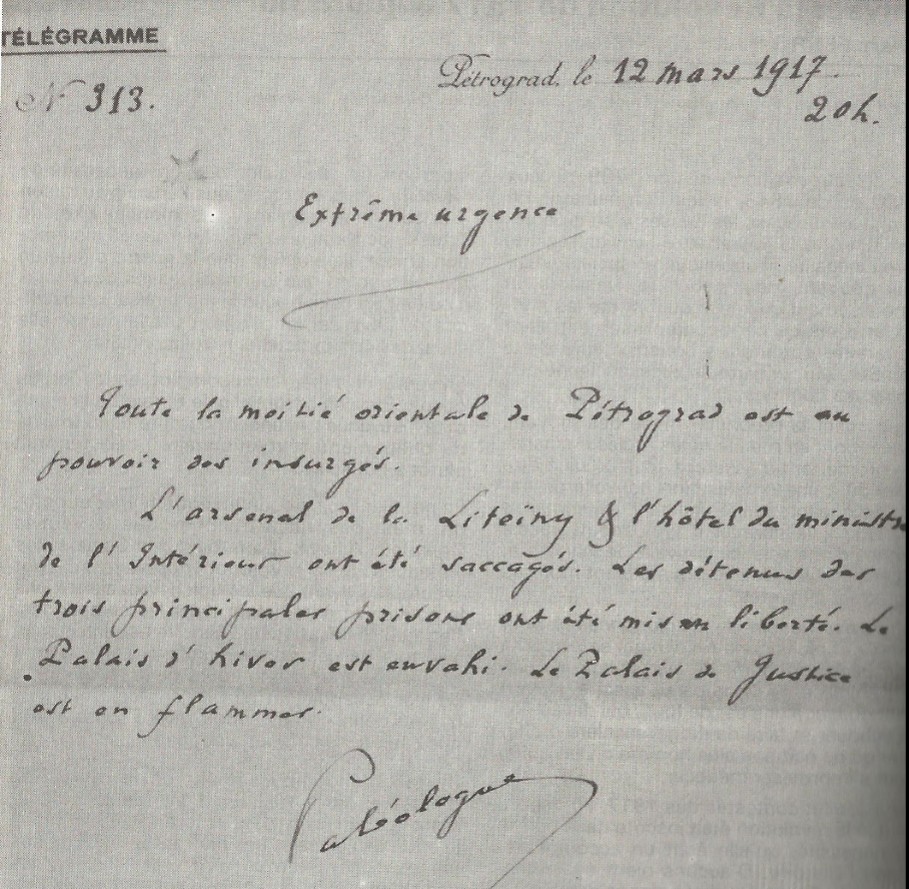 TÉLÉGRAMME
Pétrograd, le 12 mars 1917.
N° 313.
20h.
Extrême urgence
Toute la moitié orientale de Pétrograd est au
pouvoir des insurgés.
L'arsenal de la Liteïny & l'hôtel du ministre
de l'Intérieur ont été saccagés. Les détenus des
trois principales prisons ont été mis en liberté. Le
Palais d'hiver est envahi. Le Palais de Justice
est en flammes.
Paléologue